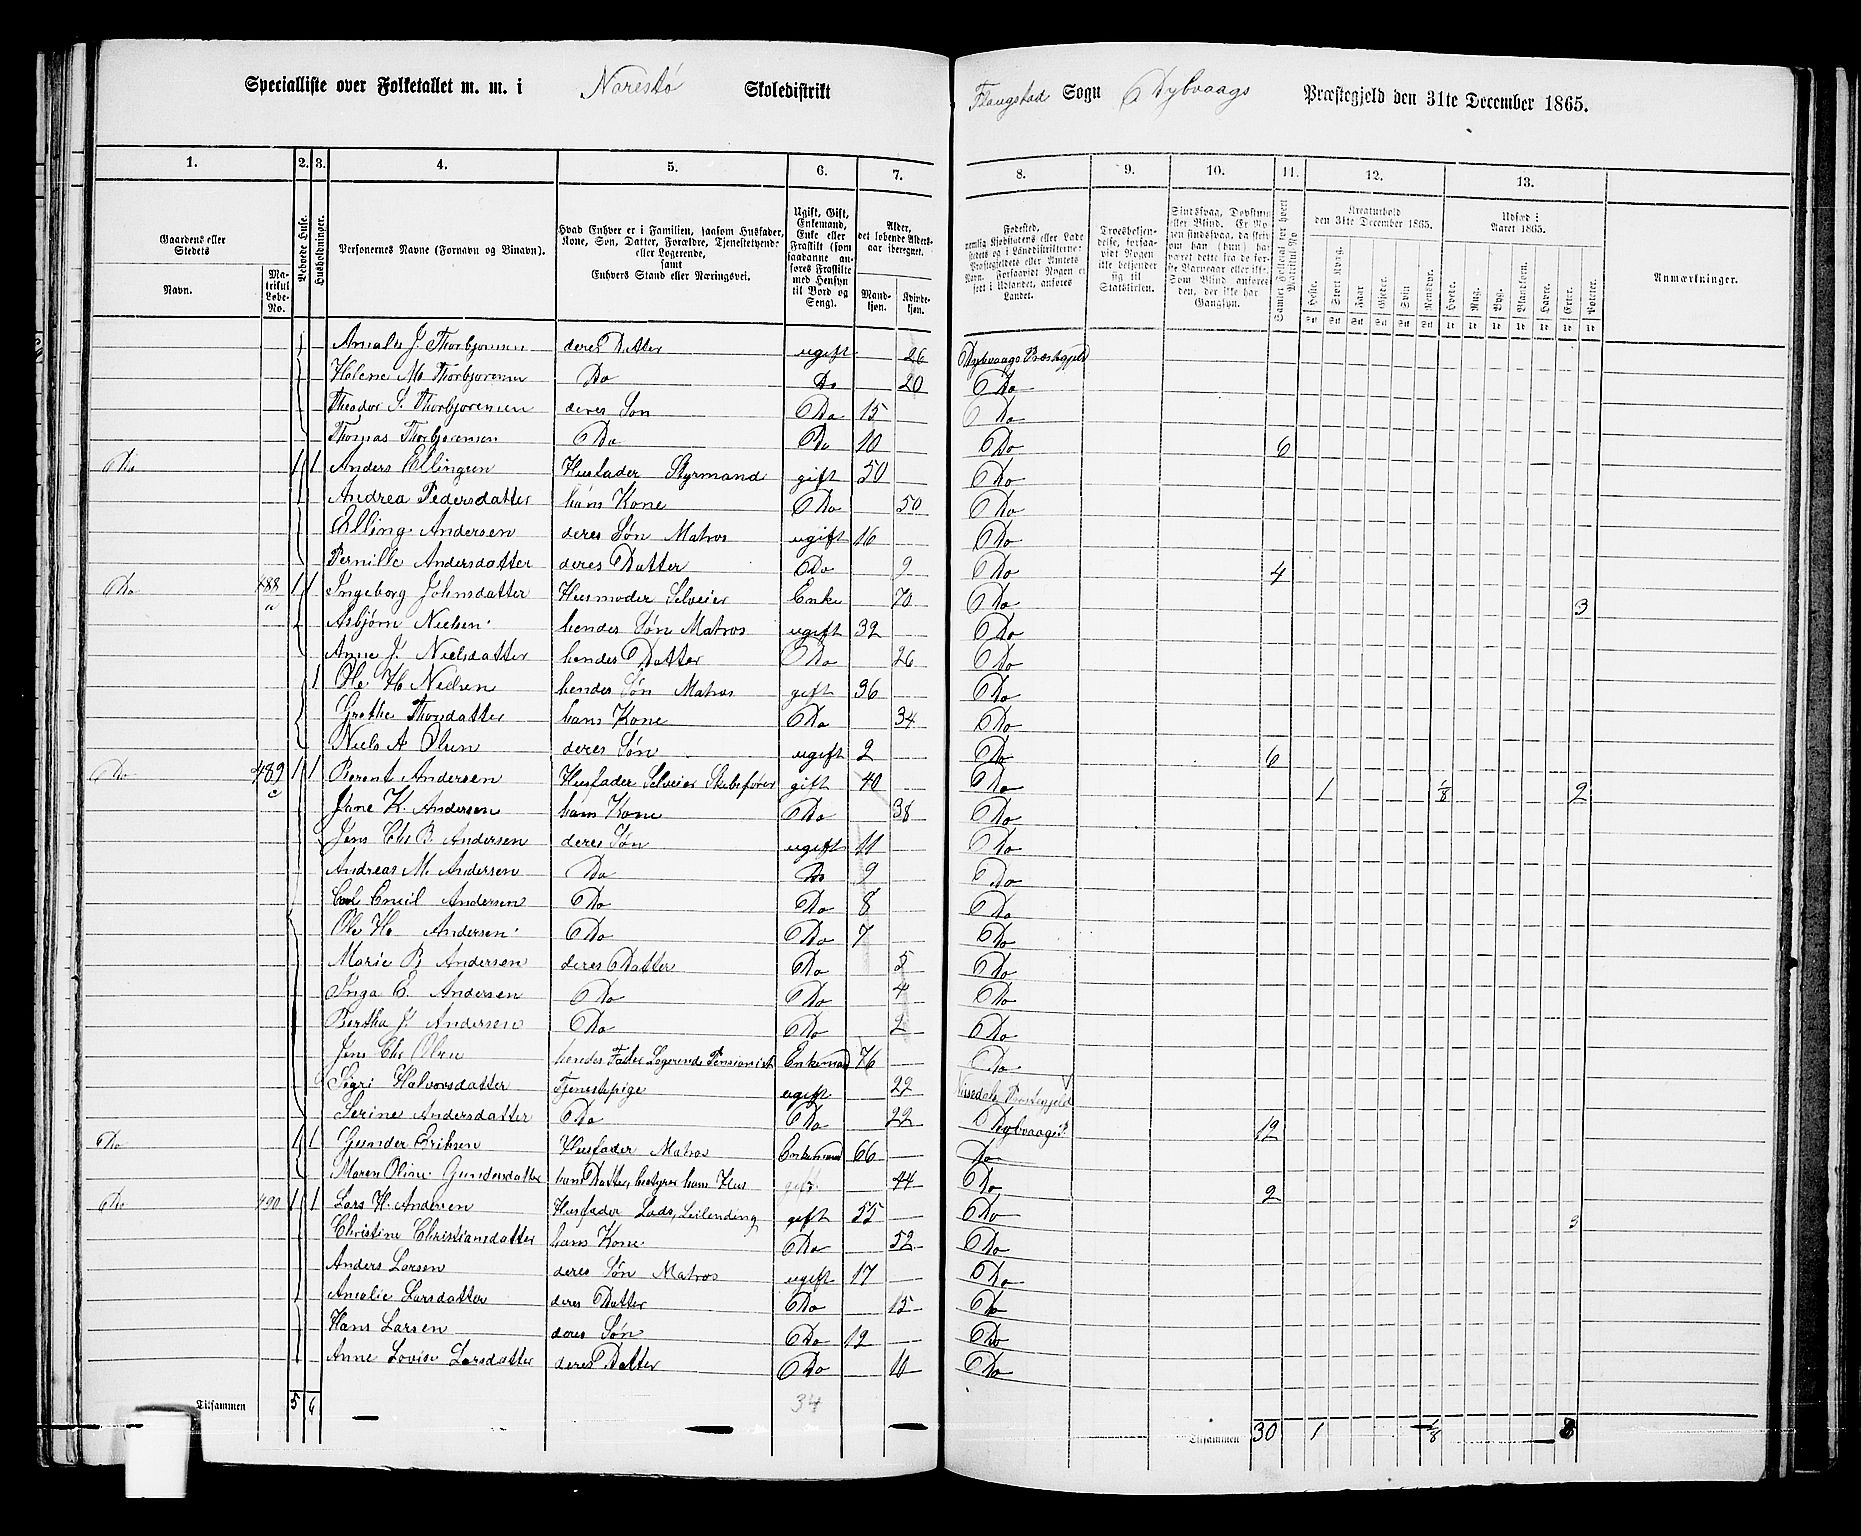 Specialliste over Folketallet m. m. i Narestø Skoledistrikt Flangstad Sogn Dybvaags Præstegjeld den 31te December 1865.
1. 2. 3. 4. 5. 6. 7. 8. 9. 10. 11. 12. 13.
Gaardens eller Stedets
Navn.
Matrikul Løbe-No.
Beboede Huse.
Husholdninger.
Personernes Navne (Fornavn og Binavn).
Hvad Enhver er i Familien, saasom Husfader, Kone, Søn, Datter, Forældre, Tjenestetyende eller Logerende, samt Enhvers Stand eller Næringsvei.
Ugift, Gift, Enkemand, Enke eller Fraskilt (som saadanne anføres Fraskilte med Hensyn til Bord og Seng).
Alder, det løbende Aldersaar iberegnet.
Mandkjøn.
Kvindekjøn.
Kreaturhold den 31te December 1865.
Udsæd i Aaret 1865.
Anmærkninger.
Amalie J. Thorbjørnsen deres Datter ugift 26 Dybvaags Præstegjeld
Helene M Thorbjørnsen Do Do 20 Do
Theodor S. Thorbjørensen deres Søn Do 15 Do
Thomas Thorbjørensen Do Do 10 Do 6
Do 1 1 Anders Ellingsen Husfader Styrmand gift 50 Do
Andrea Pedersdatter hans Kone Do 50 Do
Elling Andersen deres Søn Matros ugift 16 Do
Pernille Andersdatter deres Datter Do 9 Do 4
Do 488 a 1 1 Ingeborg Johnsdatter Husmoder Selveier Enke 70 Do 3
Asbjørn Nielsen hendes Søn Matros ugift 32 Do
Anne J. Nielsdatter hendes Datter Do 26 Do
1 Ole H Nielsen hendes Søn Matros gift 36 Do
Grethe Thorsdatter hans Kone Do 34 Do
Niels A Olsen deres Søn ugift 2 Do 6
Do 489 c 1 1 Berent Andersen Husfader Selveier Skibsfører gift 40 Do 1 1/8 2
Jane K. Andersen hans Kone Do 38 Do
Jens Chr B Andersen deres Søn ugift 11 Do
Andreas M. Andersen Do Do 9 Do
Carl Emil Andersen Do Do 8 Do
Ole H Andersen Do Do 7 Do
Marie B Andersen deres Datter Do 5 Do
Inga E. Andersen Do Do 4 Do
Bertha J. Andersen Do Do 2 Do
Jens Chr Olsen hendes Fader Logerende Pensionist Enkemand 76 Do
Sigri Halvorsdatter Tjenestepige ugift 22 Præstegjeld
Serine Andersdatter Do Do 22 Dybvaags 12
Do 1 1 Gunder Eriksen Husfader Matros Enkemand 66 Do
Maren Oline Gundersdatter hans Datter, bestyrer hans Hus gift 44 Do 2
Do 490 1 1 Lars H. Andersen Husfader Lods, Leilending gift 55 Do 3
Christine Christiansdatter hans Kone Do 52 Do
Anders Larsen deres Søn Matros ugift 17 Do
Amalie Larsdatter deres Datter Do 15 Do
Hans Larsen deres Søn Do 12 Do
Anne Lovise Larsdatter deres Datter Do 10 Do
Tilsammen 5 6 34 Tilsammen 30 1 1/8 8